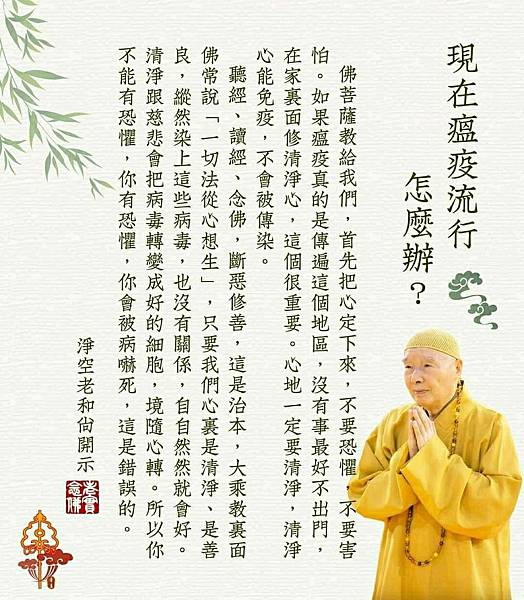 現在瘟疫流行
怎麼辦？
佛菩薩教給我們，首先把心定下來，不要恐懼，不要害
怕。如果瘟疫真的是傳遍這個地區，沒有事最好不出門，
在家裏面修清淨心，這個很重要。心地一定要清淨，清淨
心能免疫，不會被傳染。
聽經、讀經、念佛，斷惡修善，這是治本，大乘教裏面
佛常說「一切法從心想生」，只要我們心裏是清淨、是善
良，縱然染上這些病毒，也沒有關係，自自然然就會好。
清淨跟慈悲會把病毒轉變成好的細胞，境隨心轉。所以你
不能有恐懼，你有恐懼，你會被病嚇死，這是錯誤的。
淨空老和尚開示
老實
念佛